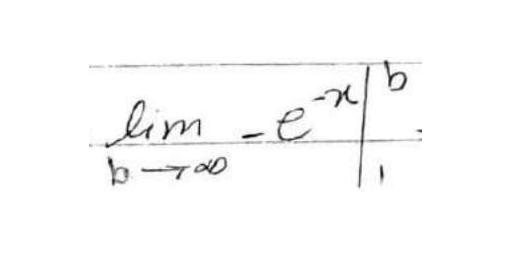 lim_{b→∞} -e^{-x} |_1^b .